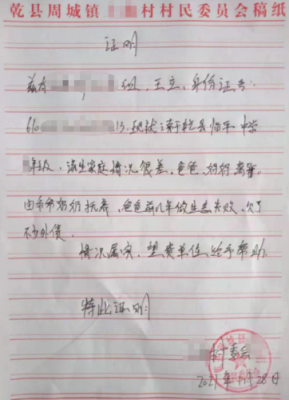 乾县周城镇 村村民委员会稿纸
证明
兹有 组,王立,身份证号:
610 13.现就读于乾县 中学
年级,该生家庭情况很差,爸爸、妈妈离异,
由爷爷奶奶抚养,爸爸前几年做生意失败,欠了
不少外债,
情况属实,望贵单位给予帮助。
特此证明
村委会
2021年 月28日